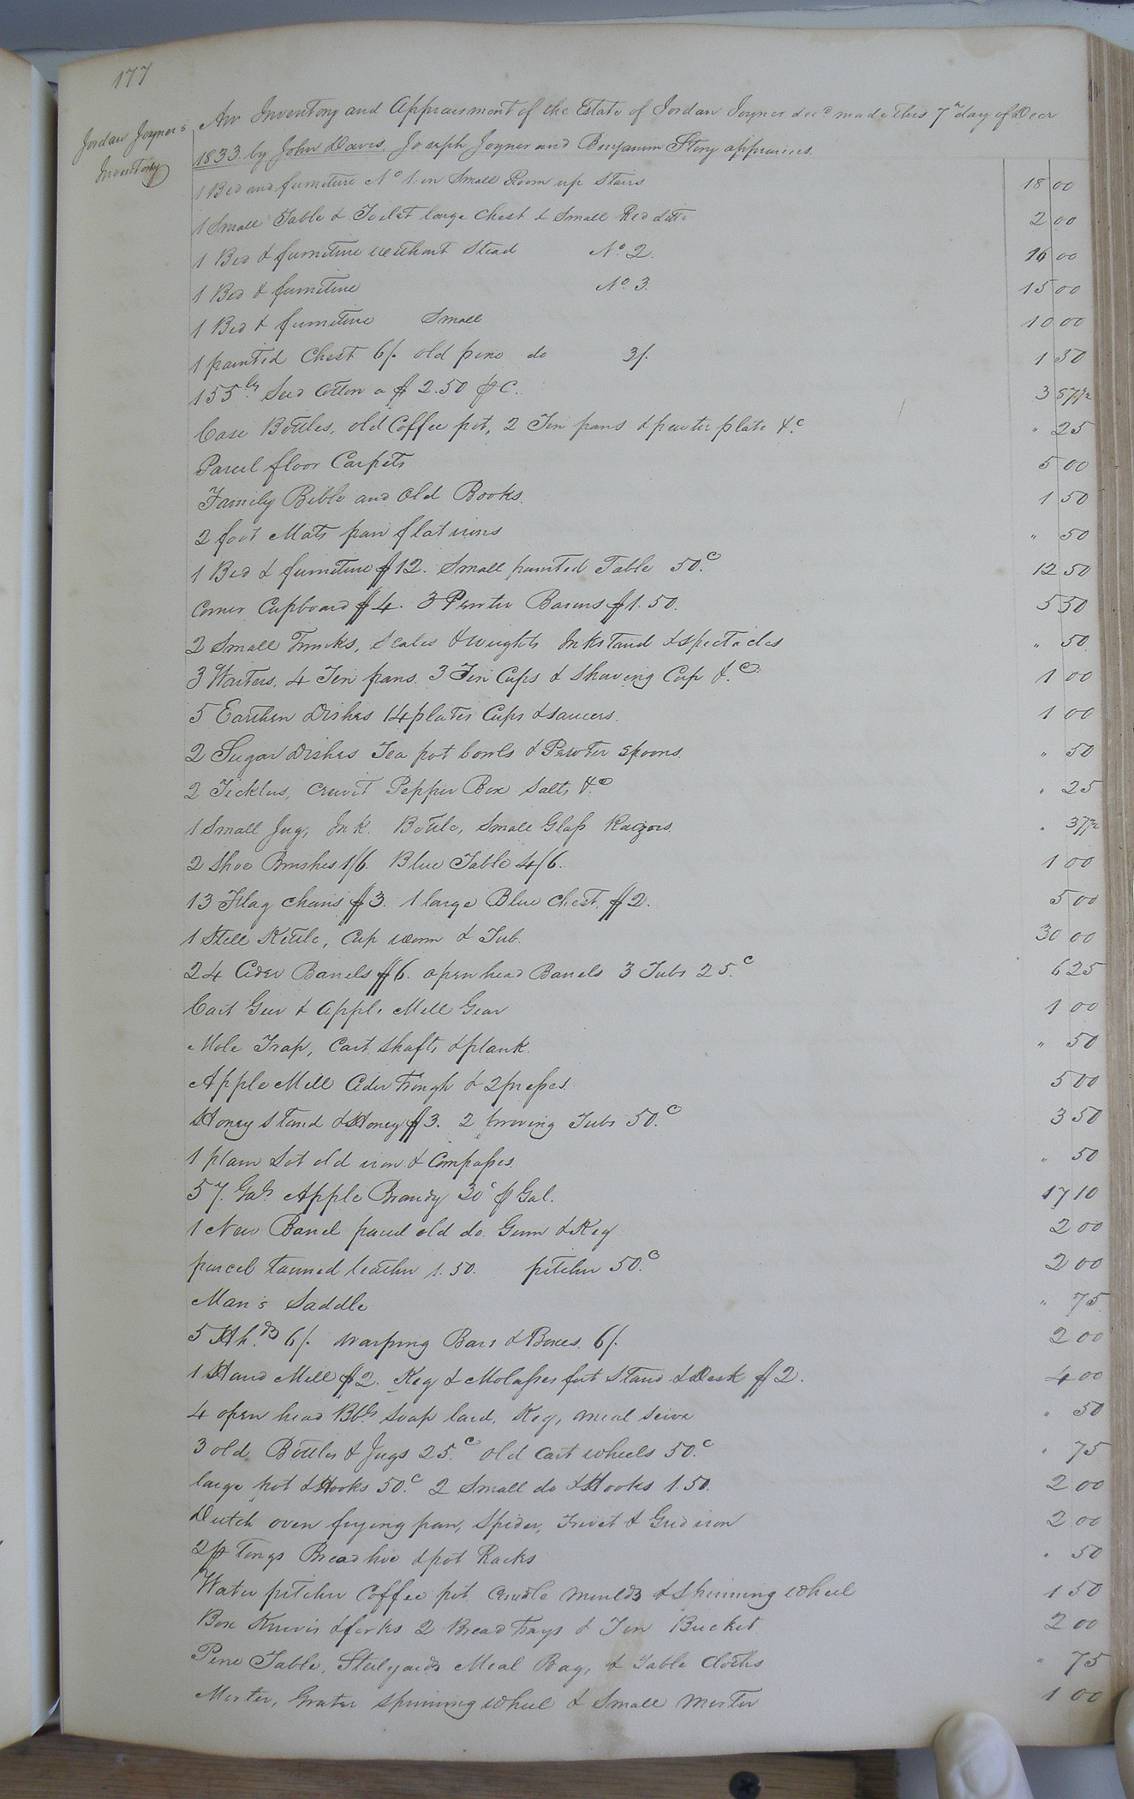 177
Jordan Joyner's
Inventory
An Inventory and Appraisment of the Estate of Jordan Joyner decd made this 7th day of Decr
1833 by John Davis, Joseph Joyner and Benjamin Story appraisers.
1 Bed and furniture No 1. in Small Room up Stairs 18 00
1 Small Table & Toilet large Chest & Small Red ditto 2 00
1 Bed & furniture without Stead No. 2. 16 00
1 Bed & furniture No. 3. 15 00
1 Bed & furniture Small 10 00
1 painted Chest 6/. old pine do 3/. 1 50
155 lbs Seed Cotton a $ 2.50 pr C. 3 87½
Case Bottles, old Coffee pot, 2 Tin pans & pewter plate &c. " 25
Parcel floor Carpets 5 00
Family Bible and Old Books. 1 50
2 foot Mats pair flat irons " 50
1 Bed & furniture $12. Small painted Table 50.c 12 50
Corner Cupboard $4. 3 Pewter Basins $1.50. 5 50
2 Small Trunks, Scales & weights Inkstand & spectacles " 50
3 Waiters, 4 Tin pans. 3 Tin Cups & Shaving Cup &.c 1 00
5 Earthen Dishes 14 plates Cups & saucers. 1 00
2 Sugar Dishes Tea pot bowls & Pewter Spoons. " 50
2 Cruvit Pepper Box Salts &c " 25
1 Small Jug, Ink Bottle, Small Glass Razors. " 37½
2 Shoe Brushes 1/6. Blue Table 4/6. 1 00
13 Flag chairs $3. 1 large Blue Chest, $2. 5 00
1 Still Kettle, Cap worm & Tub. 30 00
24 Cider Barrels $6. open head Barrels 3 Tubs 25.c 6 25
Cart Geer & Apple Mill Gear 1 00
Mole Trap, Cart shafts & plank. " 50
Apple Mill Cider Trough & 2 presses 5 00
Honey Stand & Honey $3. 2 Tubs 50.c 3 50
1 plain Lot old iron & Compasses. " 50
57. Gals Apple Brandy 30c pr Gal. 17 10
1 New Barrel parcel old do. Gum & Keg 2 00
parcel tanned leather 1.50. pitcher 50.c 2 00
Man's Saddle " 75
5 Hhds 6/. Warping Bars & Boxes. 6/. 2 00
1 Hand Mill $2. Keg & Molasses fat Stand & Desk $2. 4 00
4 open head Bbls Soap lard, Keg, meal seive " 50
3 old Bottles & Jugs 25.c old Cart wheels 50.c " 75
large pot & Hooks 50.c 2 Small do & Hooks 1.50. 2 00
Dutch oven frying pan, Spider, Trivet & Grid iron 2 00
2 pr Tongs Bread hoe & pot Racks " 50
Water pitcher Coffee pot Candle moulds & Spinning wheel 1 50
Box Knives & forks 2 Bread Trays & Tin Bucket 2 00
Pine Table, Steelyards Meal Bag, & Table Cloths " 75
Morter, Grater spinning wheel & Small Morter 1 00